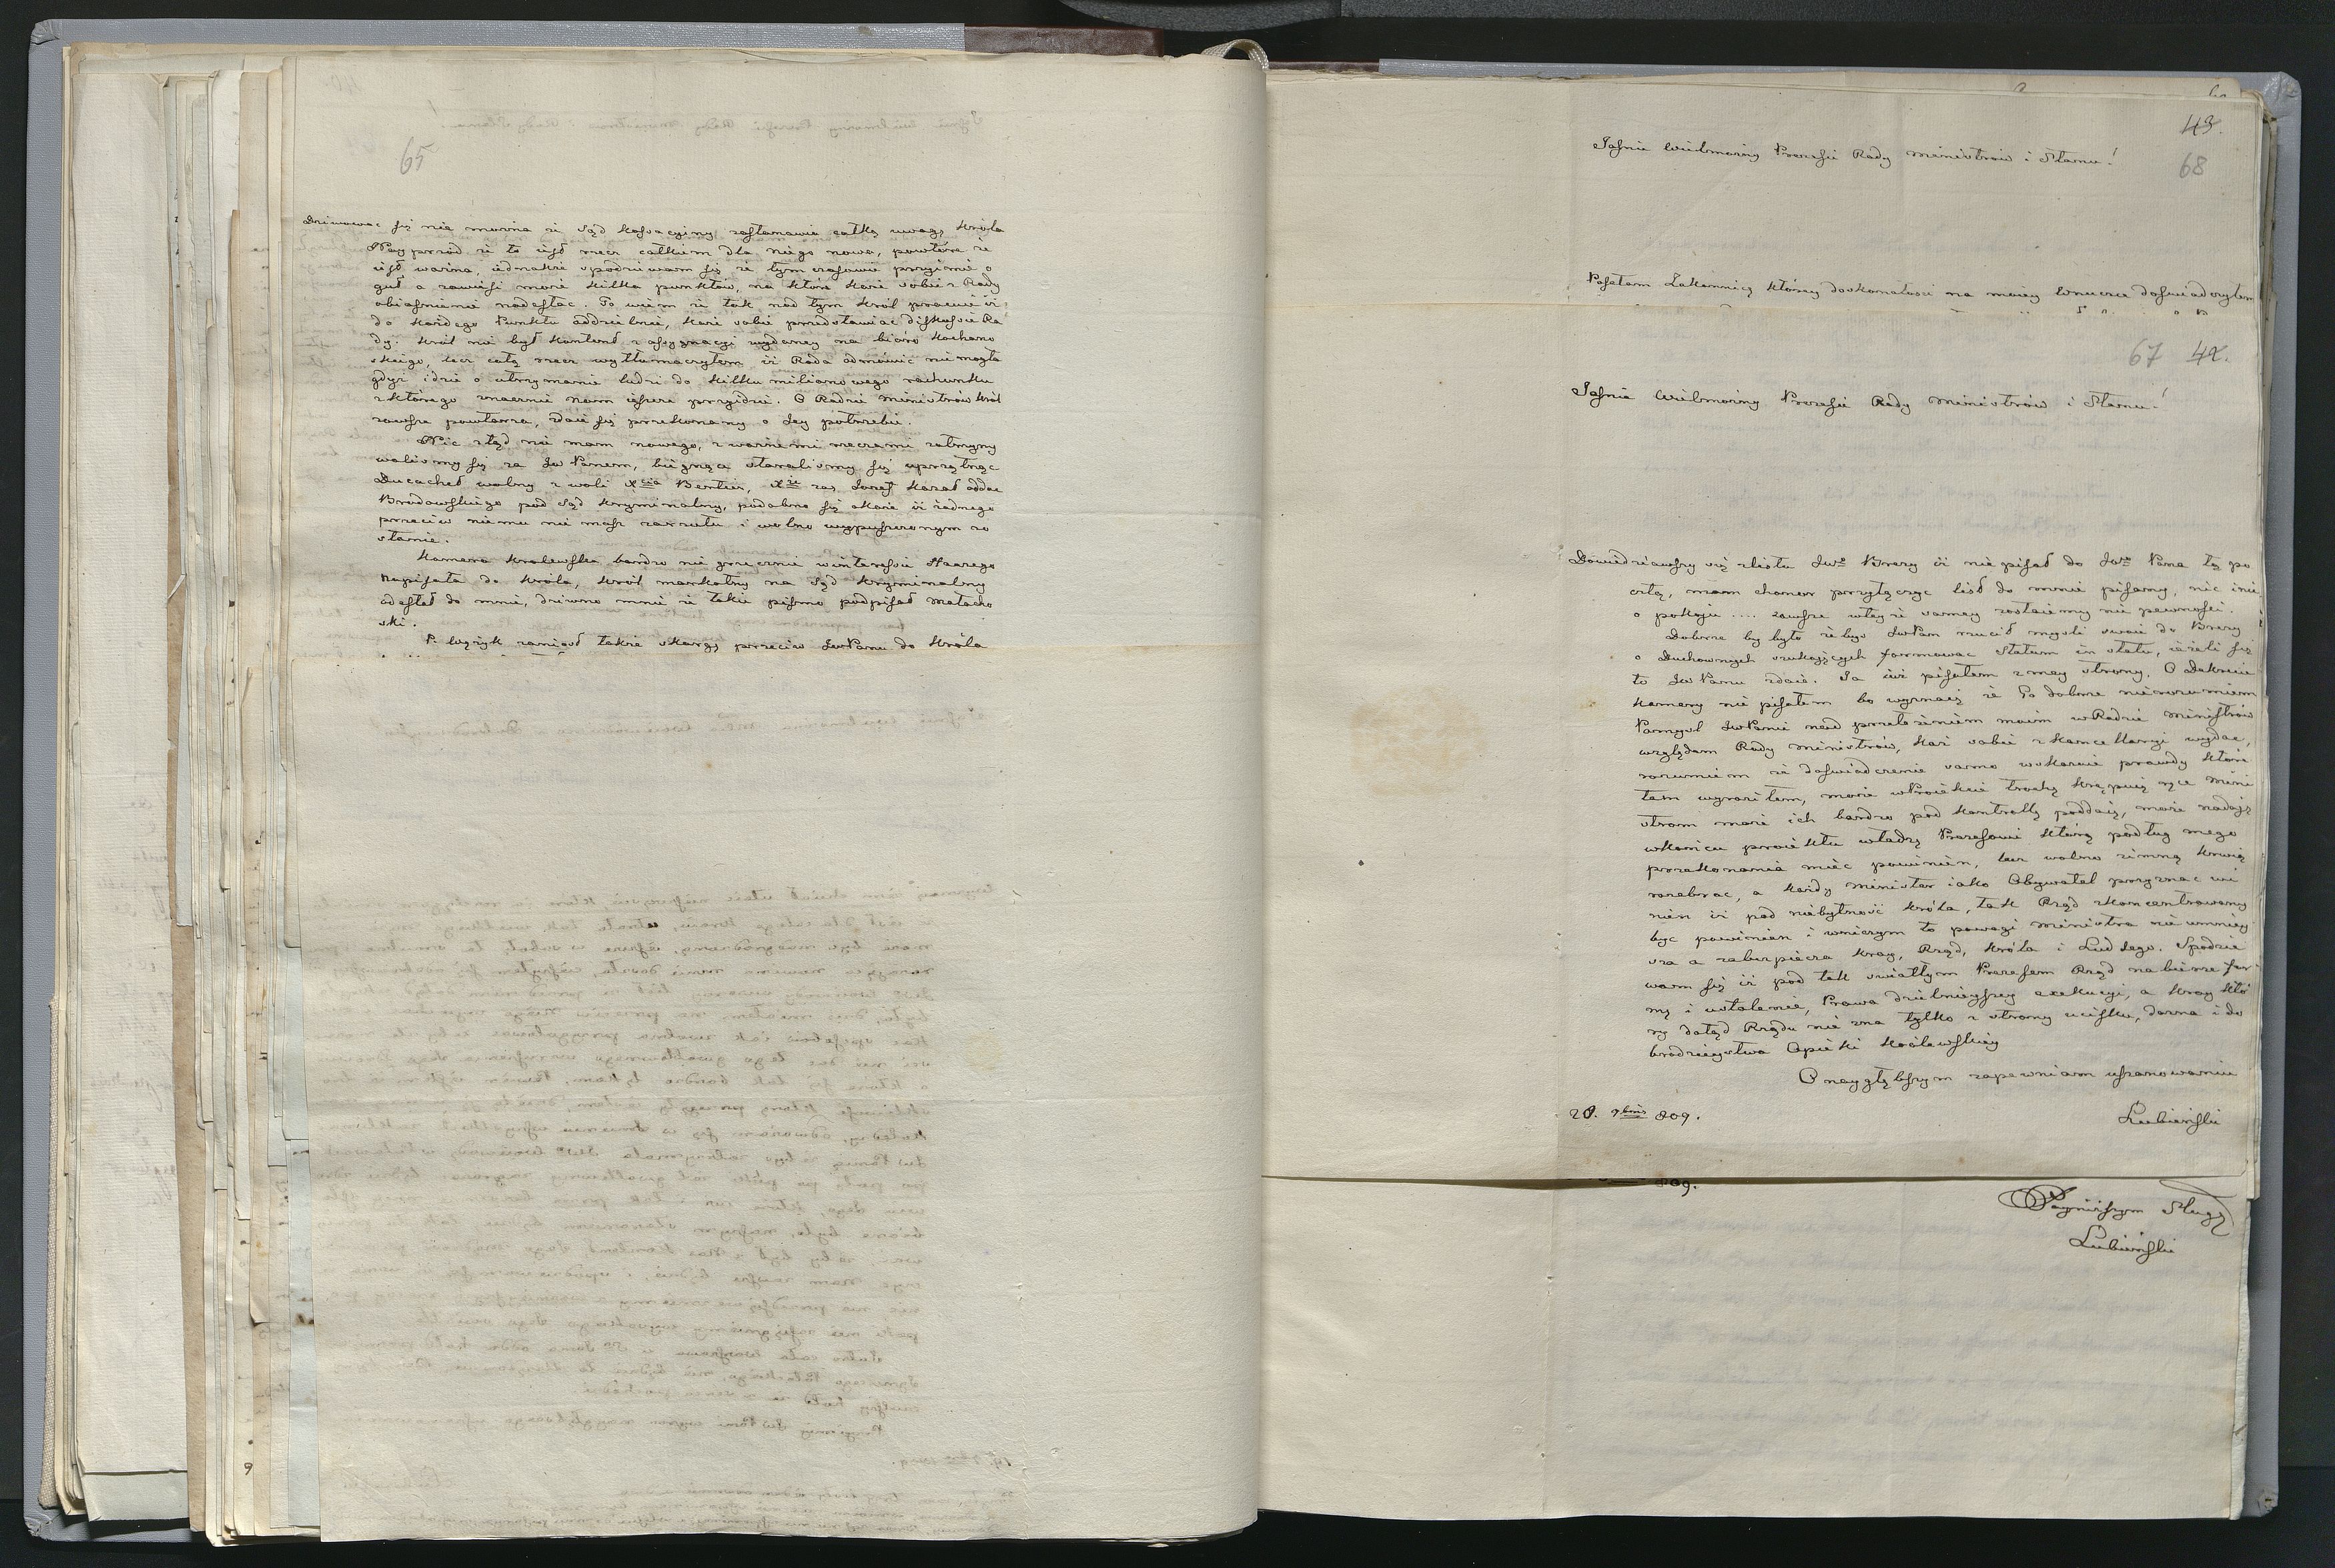 65
Dziwować się nie można że Sąd Kassacyjny zastanawia całką uwagę Króla
Nayprzód że to iest rzecz całkiem dla niego nowa, powtóre że
iest ważna, iednakże spodziewam się że tymczasowie przyimie o
guł a zawiesi może kilka punktów, na które każe sobie z Rady
obiaśnienie nadesłać. To wiem że tak nad tym Król pracuie iż
do każdego Punktu oddzielnie, każe sobie przedstawiać diskussie Ra
dy. Król nie był kontent z assygnacyi wydaney na bióro Kochano
wskiego, lecz całą rzecz wytłumaczyłem iż Rada odmówić nie mogła
gdyż idzie o utrzymanie ludzi do kilku milionowego rachunku
z którego znacznie nam ieszcze przyidzie. O Radzie Ministrów Król
zawsze powtarza, zdaie się przekonany o Jey potrzebie.
Nic ztąd nie mam nowego, z ważnemi rzeczami zatrzymy
waliśmy się za JW Panem, bieżące staraliśmy się uprzątnąć
Ducachet wolny z woli Xcia Berthier, Xże zaś Józef kazał oddać
Brodowskiego pod Sąd kryminalny, podobno się okaże iż żadnego
przeciw niemu nie masz zarzutu i wolno wypuszczonym zo
stanie.
Kamera Królewska bardzo nie grzecznie w interessie Haarego
napisała do Króla, Król markotny na Sąd kryminalny
odesłał do mnie, dziwno mnie że takie pismo podpisał Małacho
wski.
P. Łuzyk zaniósł także skargę przeciw JW Panu do Króla
43.
68
Jaśnie Wielmożny Prezesie Rady Ministrów i Stanu!
Posełam Zakonnicę którey doskonałości na moiey Wnuczce doświadczyłem
67 42.
Jaśnie Wielmożny Prezesie Rady Ministrów i Stanu!
Dowiedziawszy się z listu JWo Brezy iż nie pisał do JWo Pana tą po
cztą, mam chonor przyłączyć list do mnie pisany, nic inie
o pokoju .... zawsze w teyże samey zostaiemy nie pewności.
Dobrze by było żebyś JWPan rzucił myśli swoie do Brezy
o Duchownych szukaiących formować Statum in statu, ieżeli się
to JW Panu zdaie. Ja iuż pisałem z mey strony. O Dekrecie
Kamery nie pisałem bo wyznaię że Go dobrze nie rozumiem
Pomyśl JWPanie nad przełożeniem moim w Radzie Ministrów
względem Rady Ministrów, każ sobie z Kancellaryi wydać,
rozumiem że doświadczenie samo wskazuie prawdy które
tam wyraziłem, może w Proiekcie trochę krępuię ręce Mini
strom może ich bardzo pod kontrollę poddaię, może nadaię
w końcu proiektu władzę Prezesowi którą podług mego
przekonania mieć powinien, lecz wolno zimną krwią
rozebrać, a każdy Minister iako Obywatel przyznać wi
nien iż pod niebytność Króla, tak Rząd skoncentrowany
być powinien i w niczym to powagi Ministra nie umniey
sza a zabezpiecza Kray, Rząd, Króla i Lud Jego. Spodzie
wam się iż pod tak światłym Prezesem Rząd nabierze for
mę i ustalenie, Prawa dzielnieyszey exekucyi, a Kray któ
ry dotąd Rządu nie zna tylko z strony ucisku, dozna i do
brodzieystwa Opieki Królewskiey
O naygłębszym zapewniam uszanowaniu
28. 9bris 809.
Łubieński
809.
Nayniższym Sługą
Łubieński